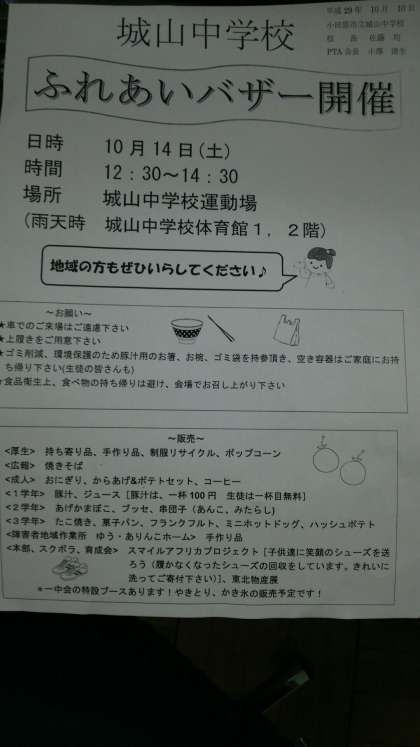 平成29年 10月 10日
小田原市立城山中学校
校長 佐藤
PTA会長 小澤
城山中学校
ふれあいバザー開催
日時 10月14日(土)
時間 12:30~14:30
場所 城山中学校運動場
(雨天時 城山中学校体育館1,2階)
地域の方もぜひいらしてください♪
~お願い~
★車でのご来場はご遠慮下さい
★上履きをご用意下さい
★ゴミ削減、環境保護のため豚汁用のお箸、お椀、ゴミ袋を持参頂き、空き容器はご家庭にお持
ち帰り下さい(生徒の皆さんも)
★食品衛生上、食べ物の持ち帰りは避け、会場でお召し上がり下さい
~販売~
<厚生> 持ち寄り品、手作り品、制服リサイクル、ポップコーン
<広報> 焼きそば
<成人> おにぎり、からあげ&ポテトセット、コーヒー
<1学年> 豚汁、ジュース [豚汁は、一杯100円 生徒は一杯目無料]
<2学年> あげかまぼこ、ブッセ、串団子(あんこ、みたらし)
<3学年> たこ焼き、菓子パン、フランクフルト、ミニホットドッグ、ハッシュポテト
<障害者地域作業所 ゆう・ありんこホーム> 手作り品
<本部、スクボラ、育成会> スマイルアフリカプロジェクト [子供達に笑顔のシューズを送
ろう(履かなくなったシューズの回収をしています。きれいに
洗ってご寄付下さい)]、東北物産展
*一中会の特設ブースあります!やきとり、かき氷の販売予定です!